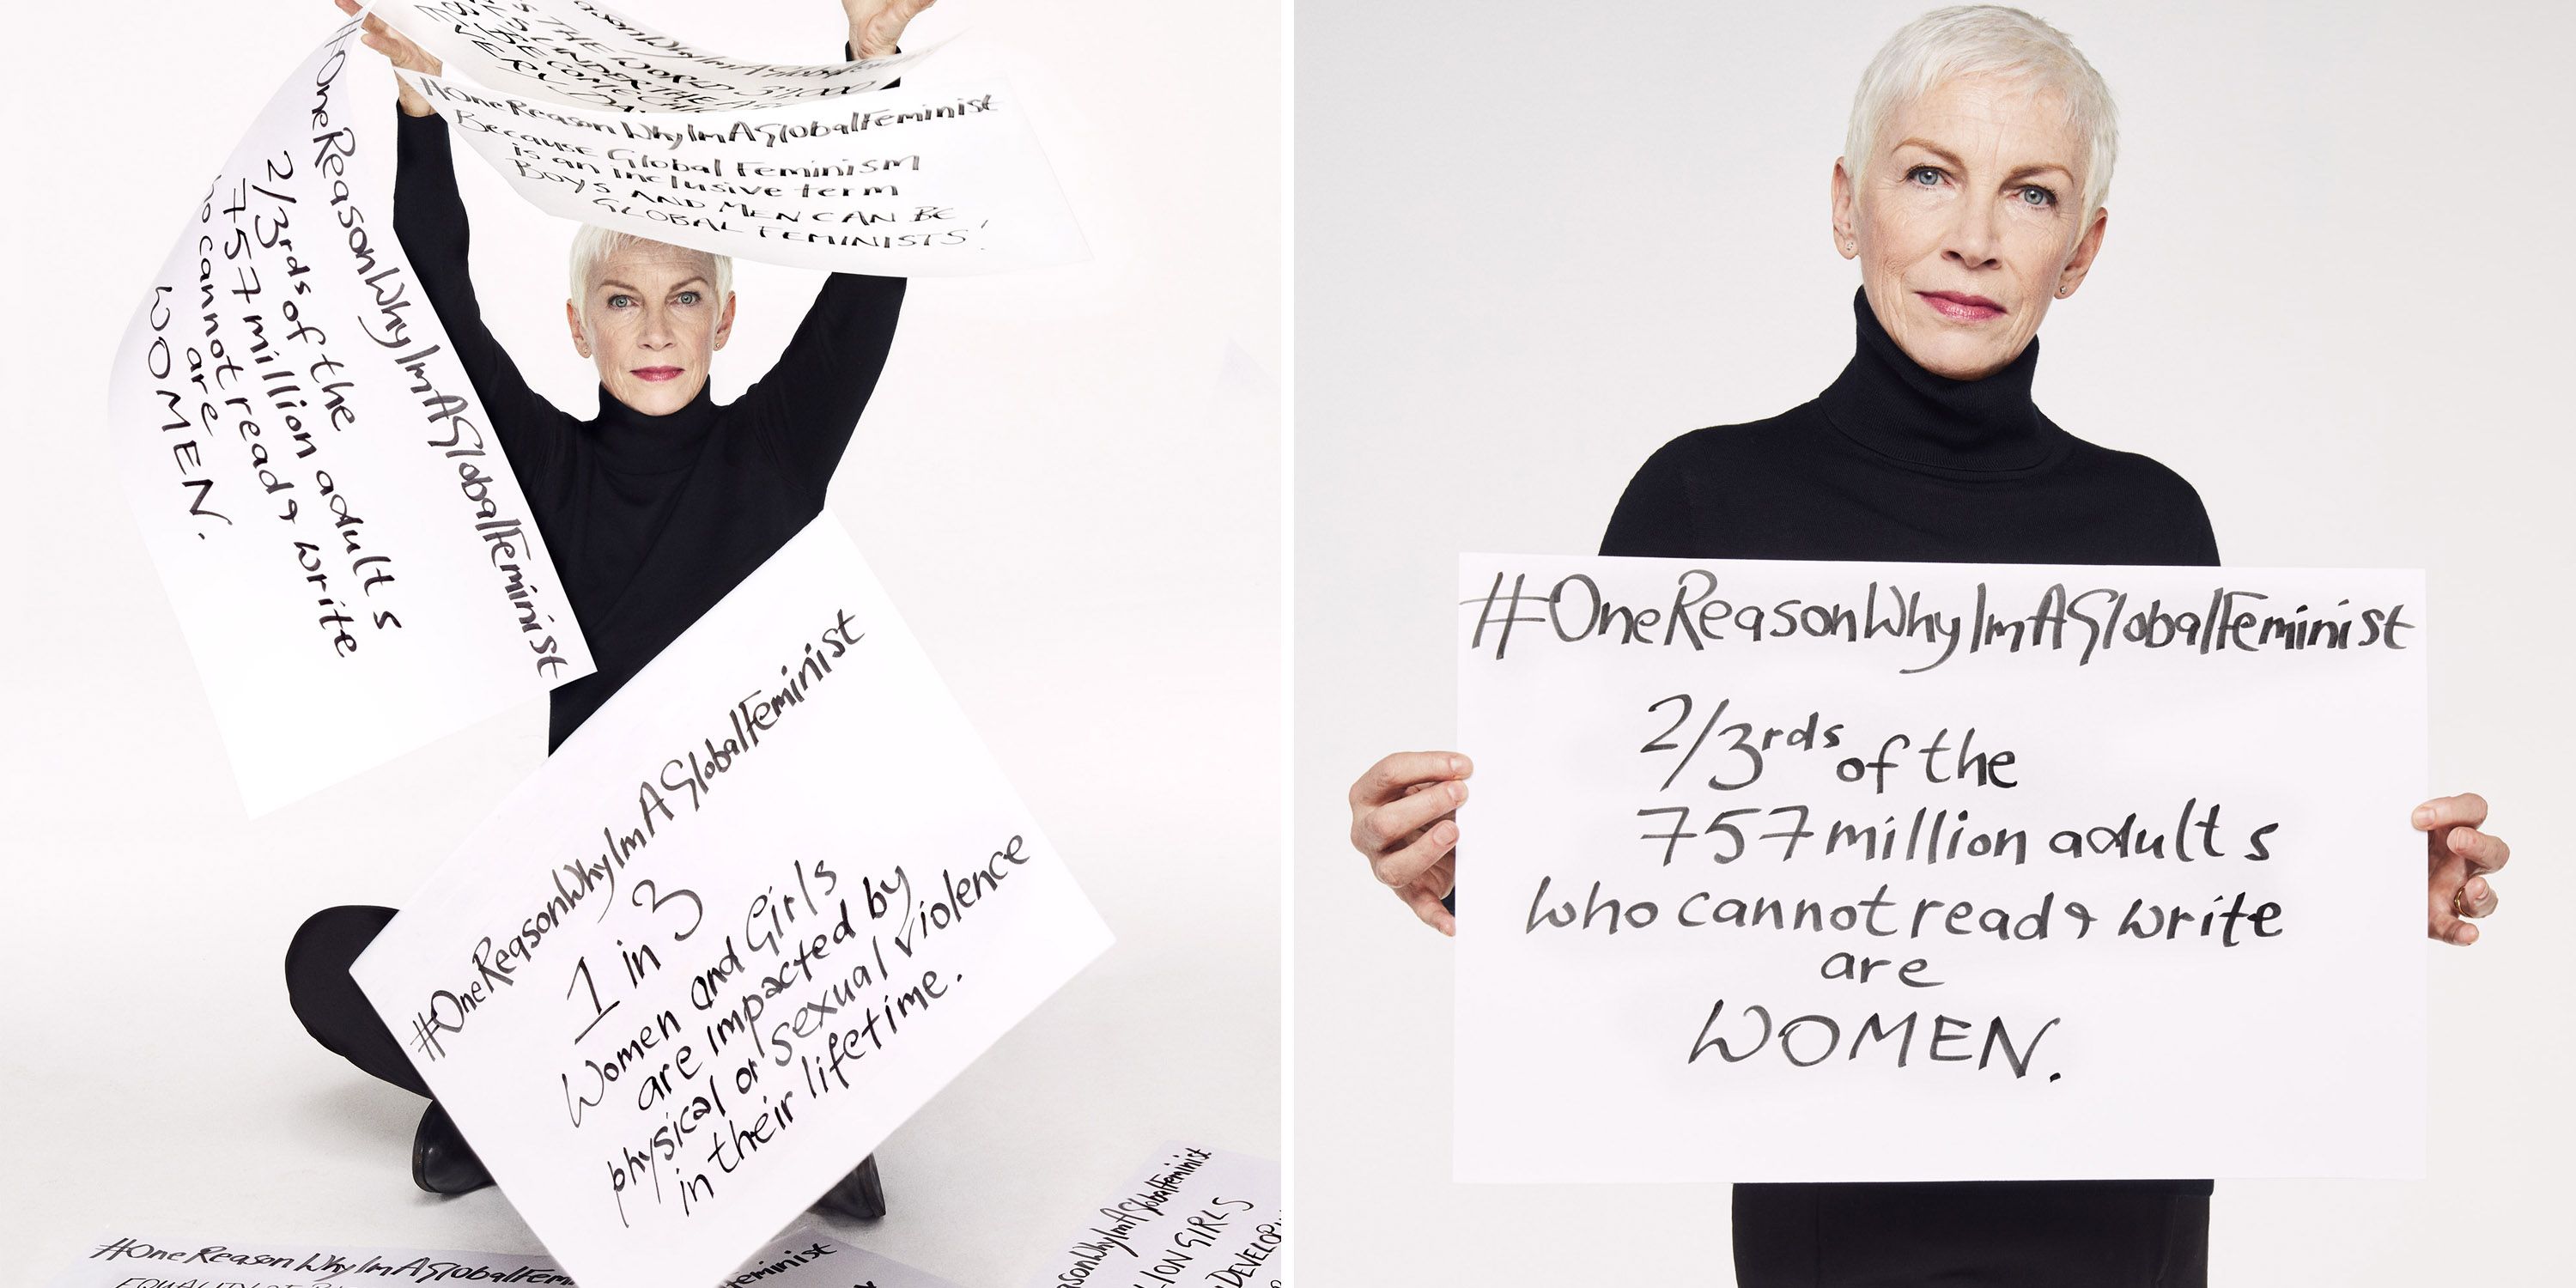 #OneReasonWhyImAGlobalFeminist
THE WORLD 39,000
#OneReasonWhyImAGlobalFeminist
Because Global Feminism
is an inclusive term
Boys AND MEN CAN BE
GLOBAL FEMINISTS!
#OneReasonWhyImAGlobalFeminist
2/3rds of the
757 million adults
who cannot read & write
are
WOMEN.
#OneReasonWhyImAGlobalFeminist
1 in 3
Women and Girls
are impacted by
physical or sexual violence
in their lifetime.
#OneReasonWhyImAGlobalFem
eminist
asonWhyImAGlobalFeminist
LION GIRLS
DEVELOP
#OneReasonWhyImAGlobalFeminist
2/3rds of the
757 million adults
who cannot read & write
are
WOMEN.